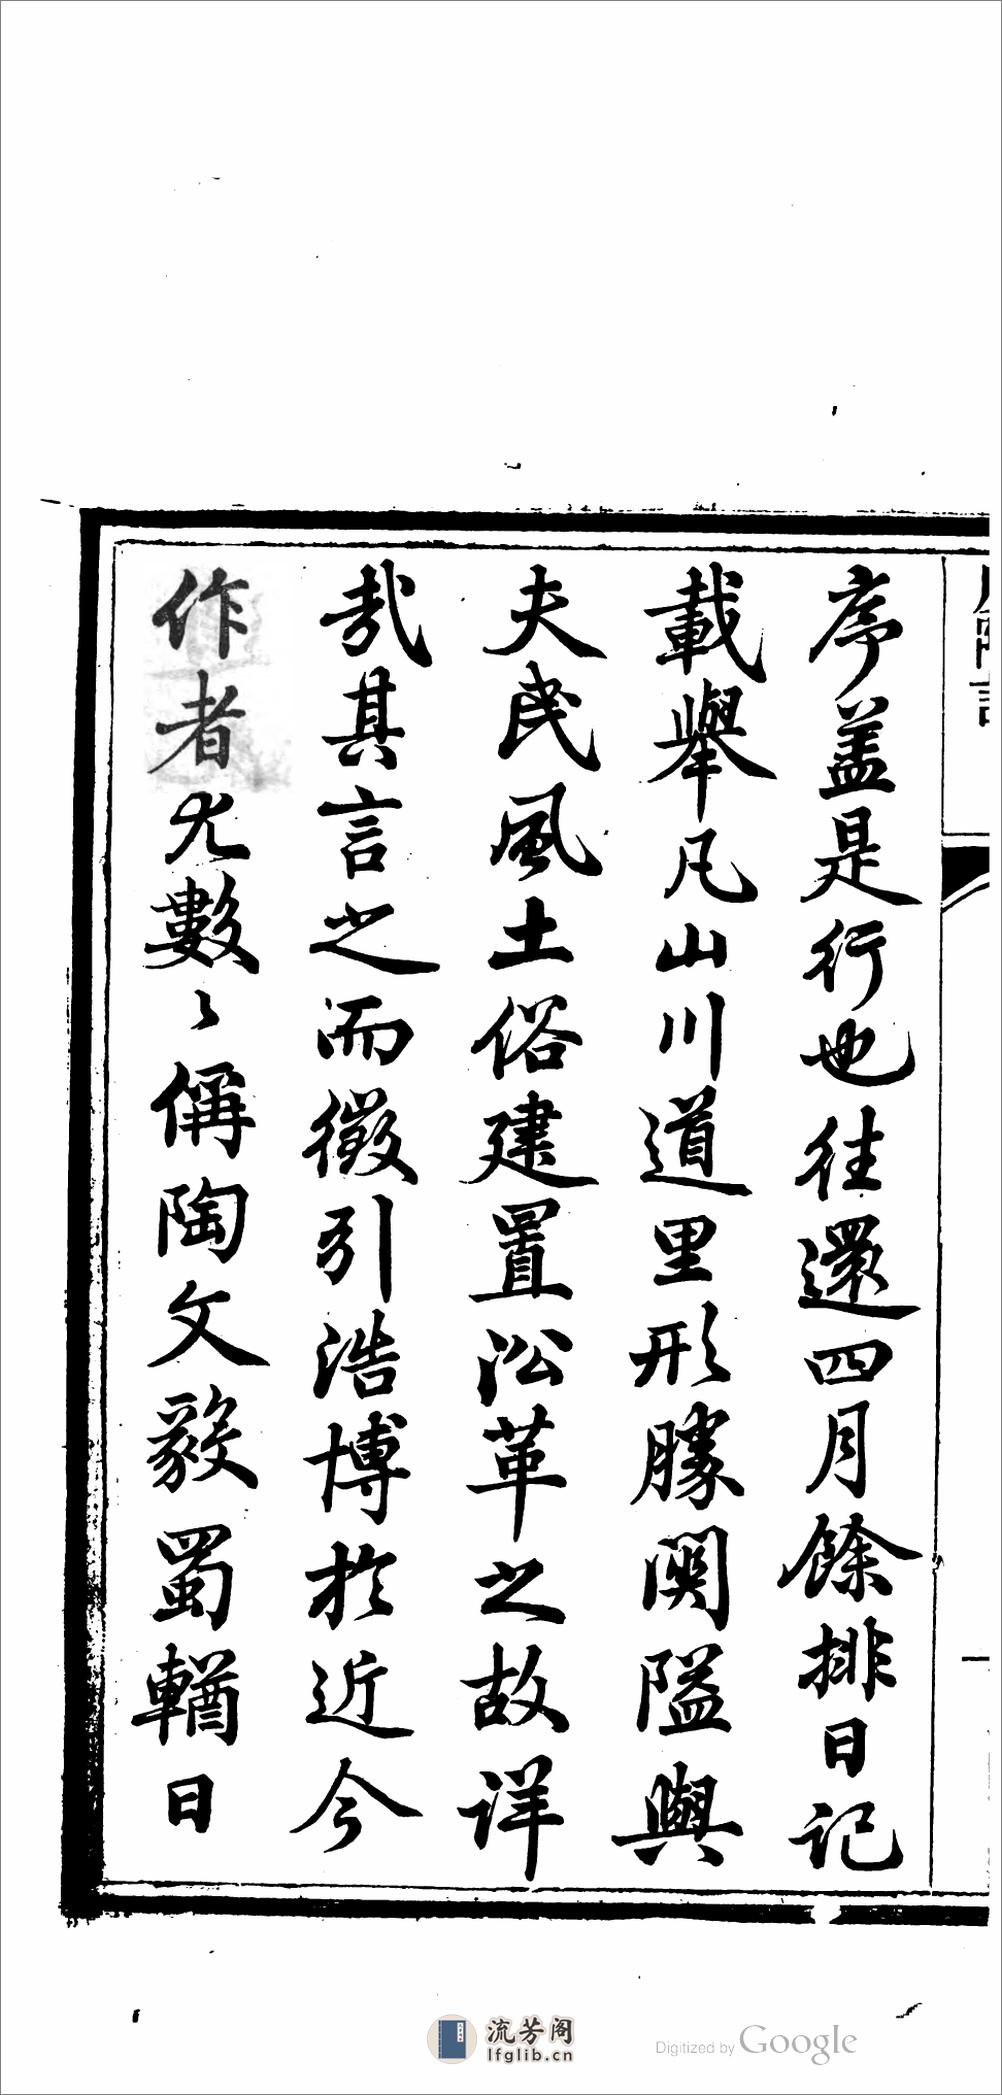 序盖是行也往還四月餘排日記
載舉凡山川道里形勝關隘與
夫民風土俗建置沿革之故詳
哉其言之而徵引浩博於近今
作者尤數〻偁陶文毅蜀輶日
一
流芳阁
lfglib.cn
Digitized by Google